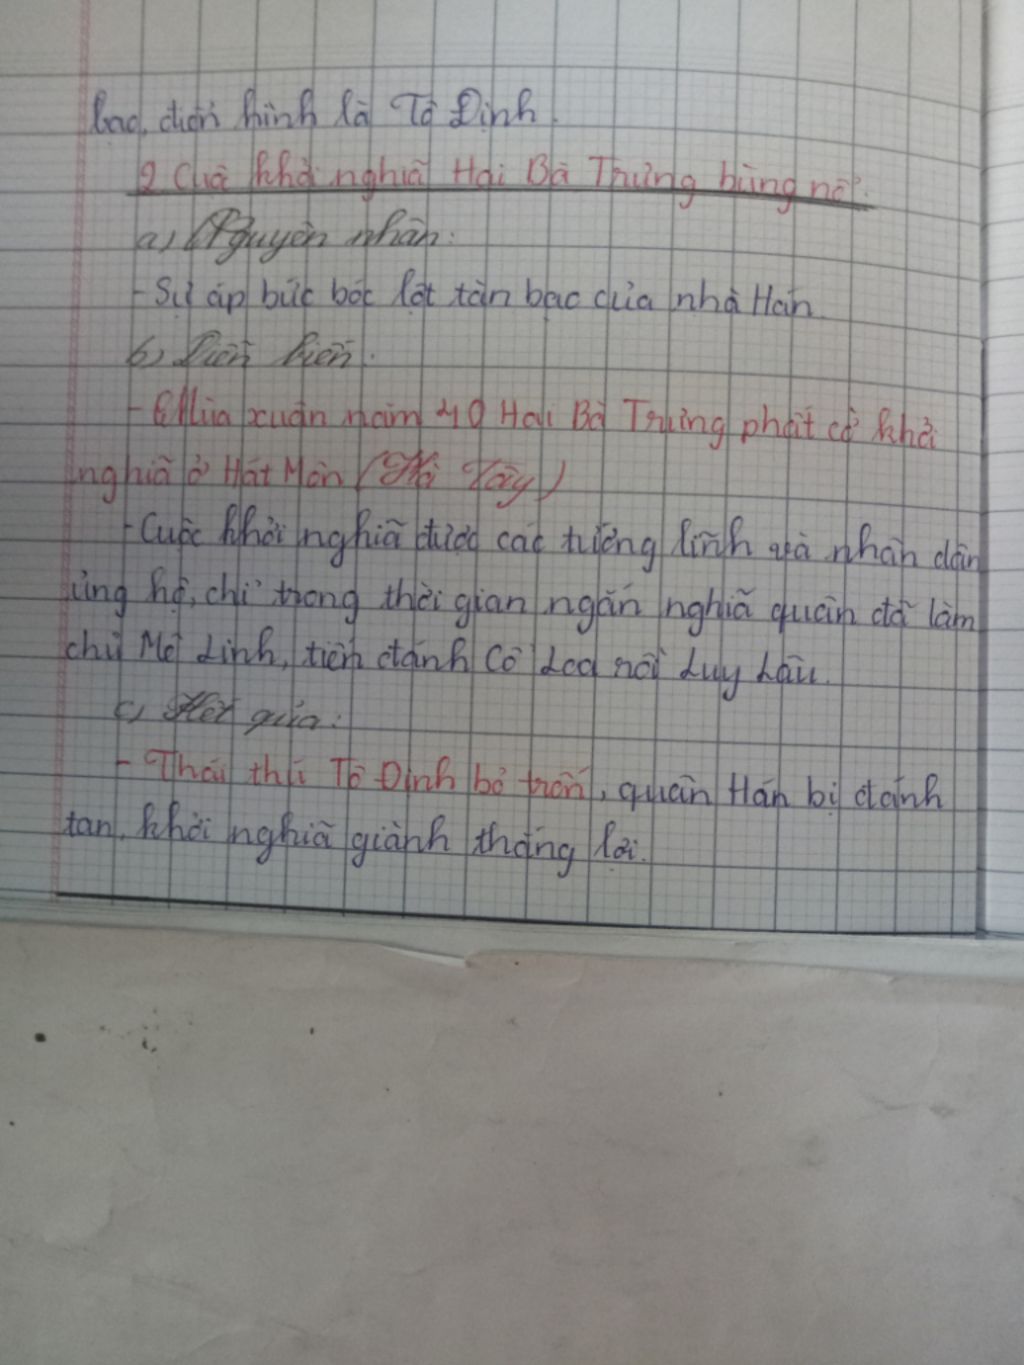 bạo, điển hình là Tô Định.
2 Cuộc khởi nghĩa Hai Bà Trưng bùng nổ.
a) Nguyên nhân:
- Sự áp bức bóc lột tàn bạo của nhà Hán.
b) Diễn biến.
- Mùa xuân năm 40 Hai Bà Trưng phất cờ khởi
nghĩa ở Hát Môn (Hà Tây)
- Cuộc khởi nghĩa được các tướng lĩnh và nhân dân
ủng hộ, chỉ trong thời gian ngắn nghĩa quân đã làm
chủ Mê Linh, tiến đánh Cổ Loa rồi Luy Lâu.
c) Kết quả:
- Thái thú Tô Định bỏ trốn, quân Hán bị đánh
tan, khởi nghĩa giành thắng lợi.